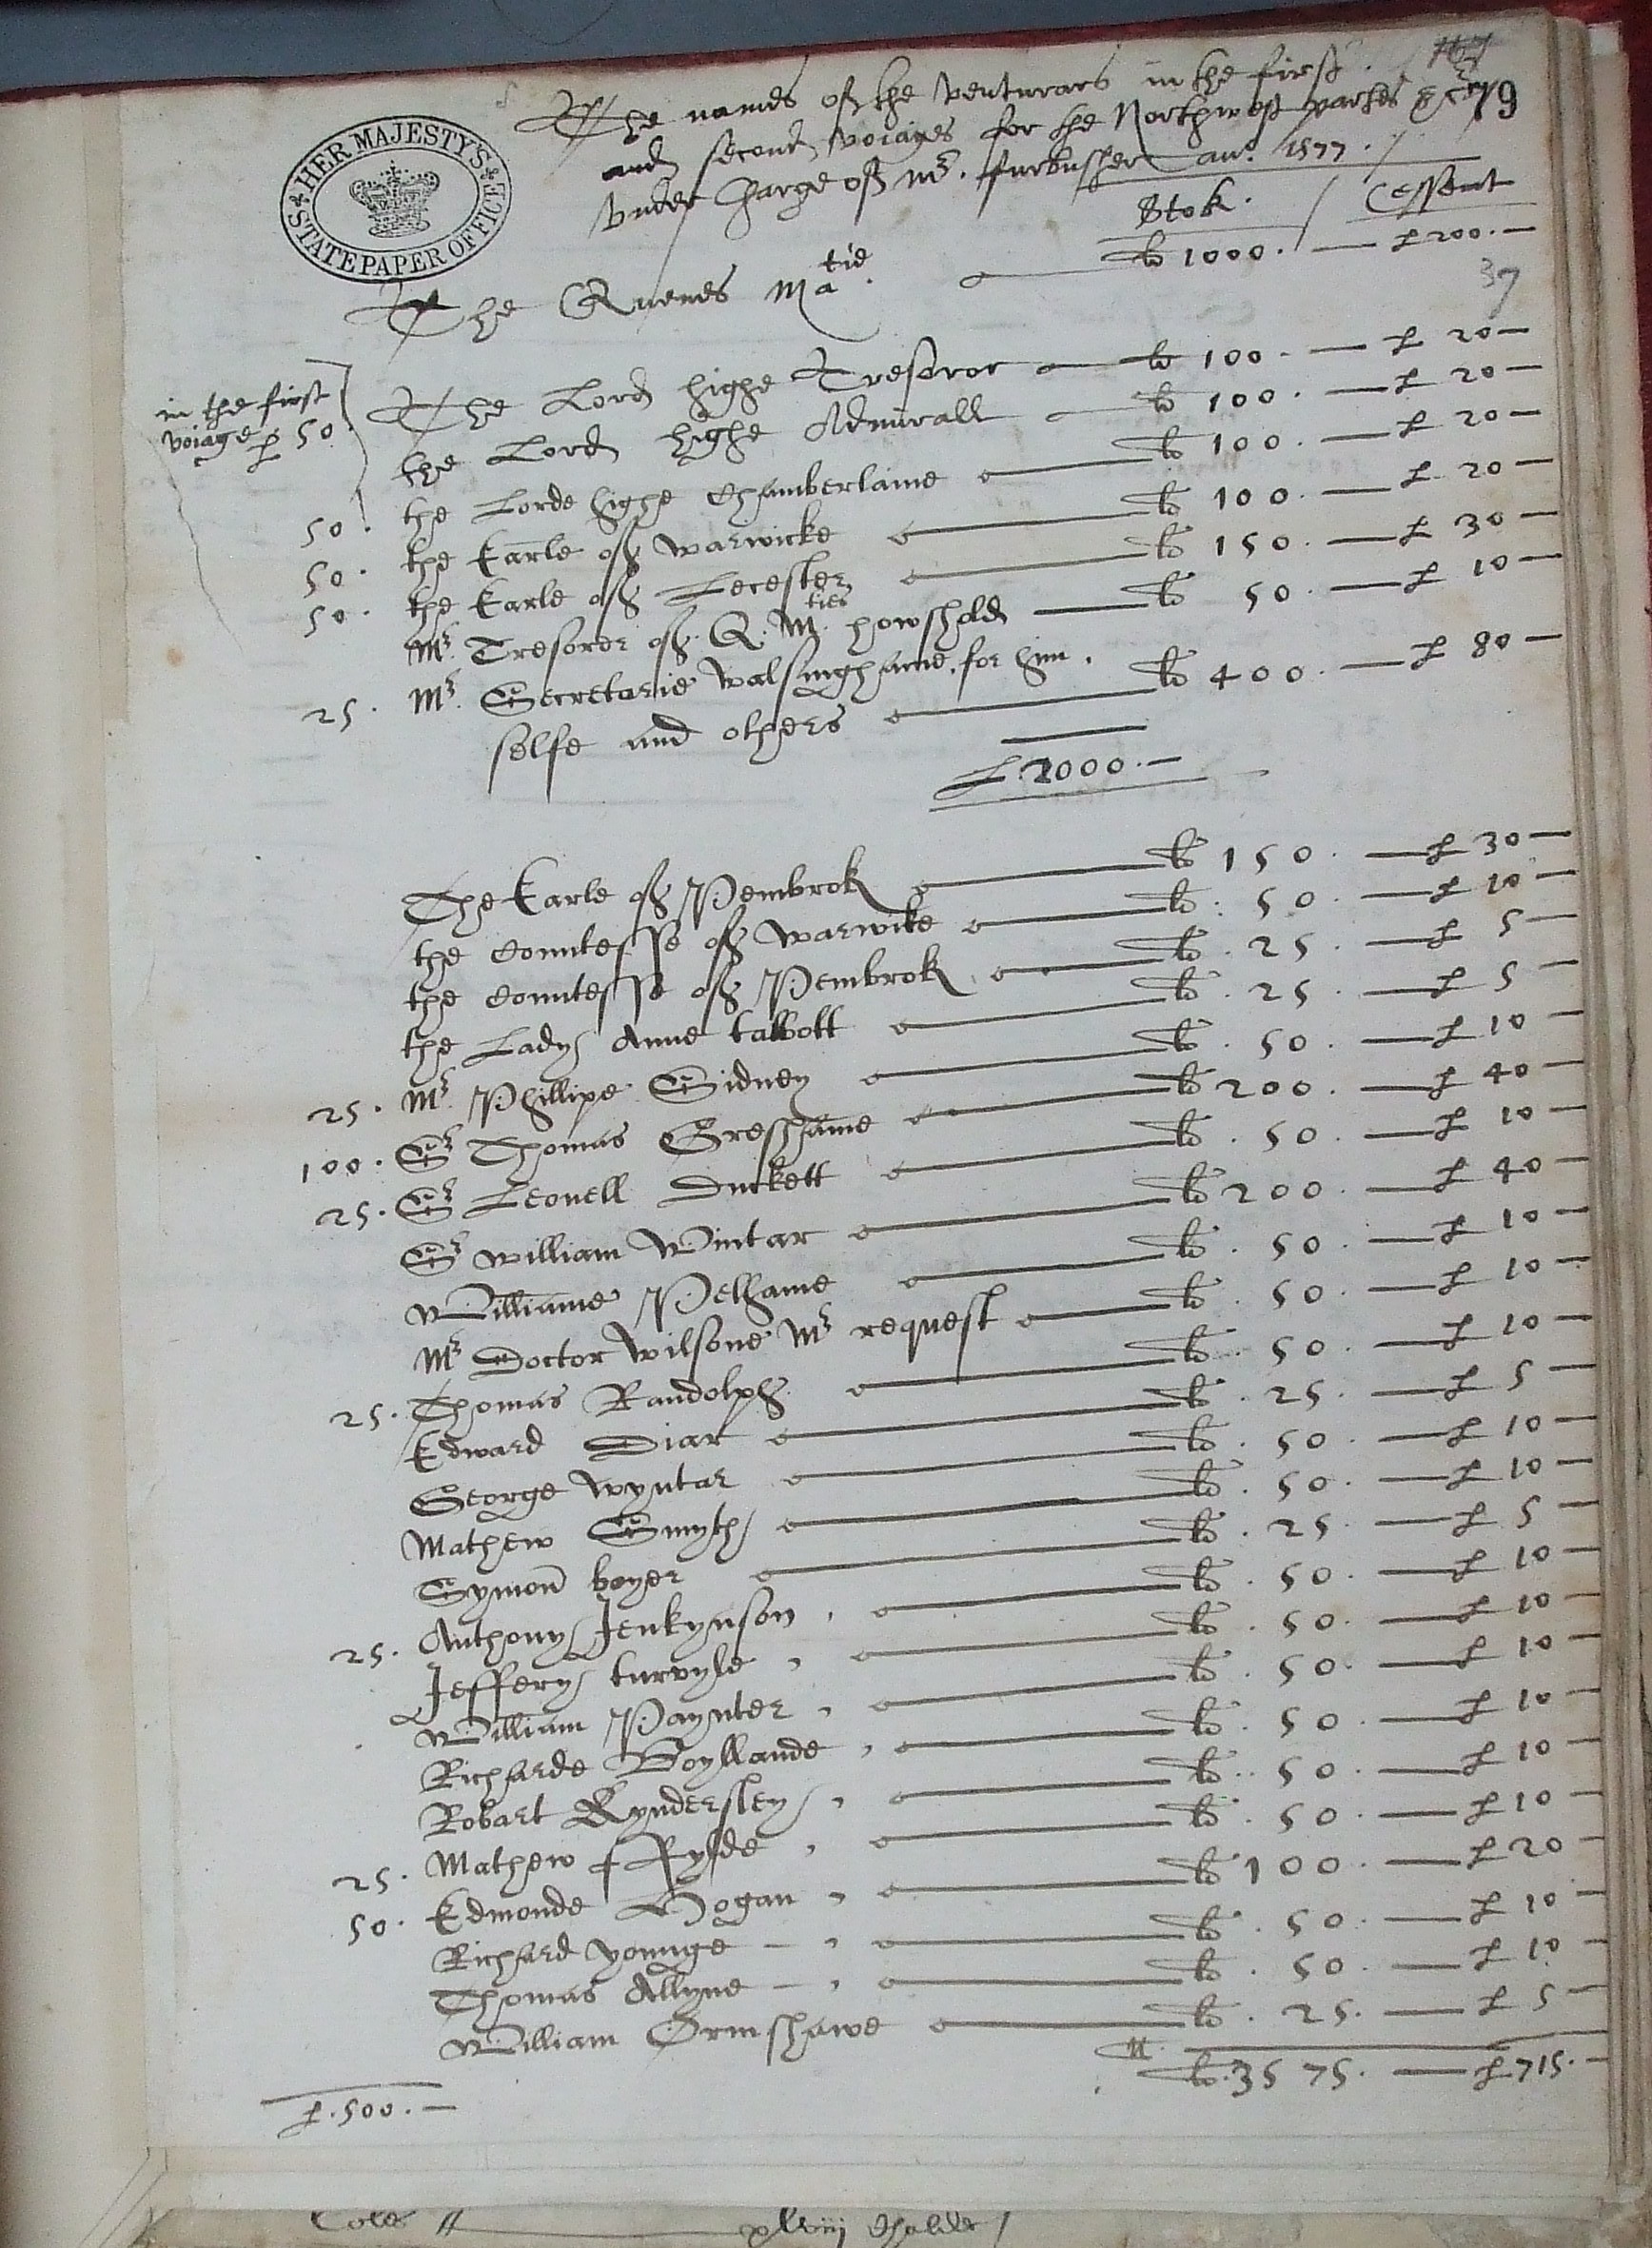 The names of the venturars in the first
and second voiages for the Northwest partes
79
under charge of Mr. furbusher ano. 1577.
HER MAJESTY'S STATE PAPER OFFICE
Stok. / Cessent
The Quenes Matie. £ 1000. — £ 200. —
37
in the first voiage £ 50. The Lord highe Tresoror £ 100. — £ 20 —
the Lord highe Admirall £ 100. — £ 20 —
50. the Lorde highe Chamberlaine £ 100. — £ 20 —
50. the Earle of warwicke £ 100. — £ 20 —
50. the Earle of Lecester £ 150. — £ 30 —
Mr. Tresorer of Q. Mties. howshold £ 50. — £ 10 —
25. Mr. Secretarie walsinghame. for him.
selfe and others £ 400. — £ 80 —
£ 2000. —
The Earle of Pembrok £ 150. — £ 30 —
the Countesse of warwike £ 50. — £ 10 —
the Countesse of Pembrok £ 25. — £ 5 —
the Lady Anne talbott £ 25. — £ 5 —
25. Mr. Phillipe Sidney £ 50. — £ 10 —
100. Sr Thomas Greshame £ 200. — £ 40 —
25. Sr Leonell Duckett £ 50. — £ 10 —
Sr william Wintar £ 200. — £ 40 —
Williame Pelhame £ 50. — £ 10 —
Mr Doctor wilsone Mr request £ 50. — £ 10 —
25. Thomas Randolph £ 50. — £ 10 —
Edward Diar £ 25. — £ 5 —
George wyntar £ 50. — £ 10 —
Mathew Smyth £ 50. — £ 10 —
Symon boyer £ 25. — £ 5 —
25. Anthony Jenkynson £ 50. — £ 10 —
Jeffery turvyle £ 50. — £ 10 —
William Paynter £ 50. — £ 10 —
Richarde Boyllande £ 50. — £ 10 —
Robart Kyndersley £ 50. — £ 10 —
25. Mathew fylde £ 50. — £ 10 —
50. Edmonde Hogan £ 100. — £ 20
Richard younge £ 50. — £ 10 —
Thomas Allyne £ 50. — £ 10 —
William Ormshawe £ 25. — £ 5 —
£. 500. — £. 3575. — £ 715. —